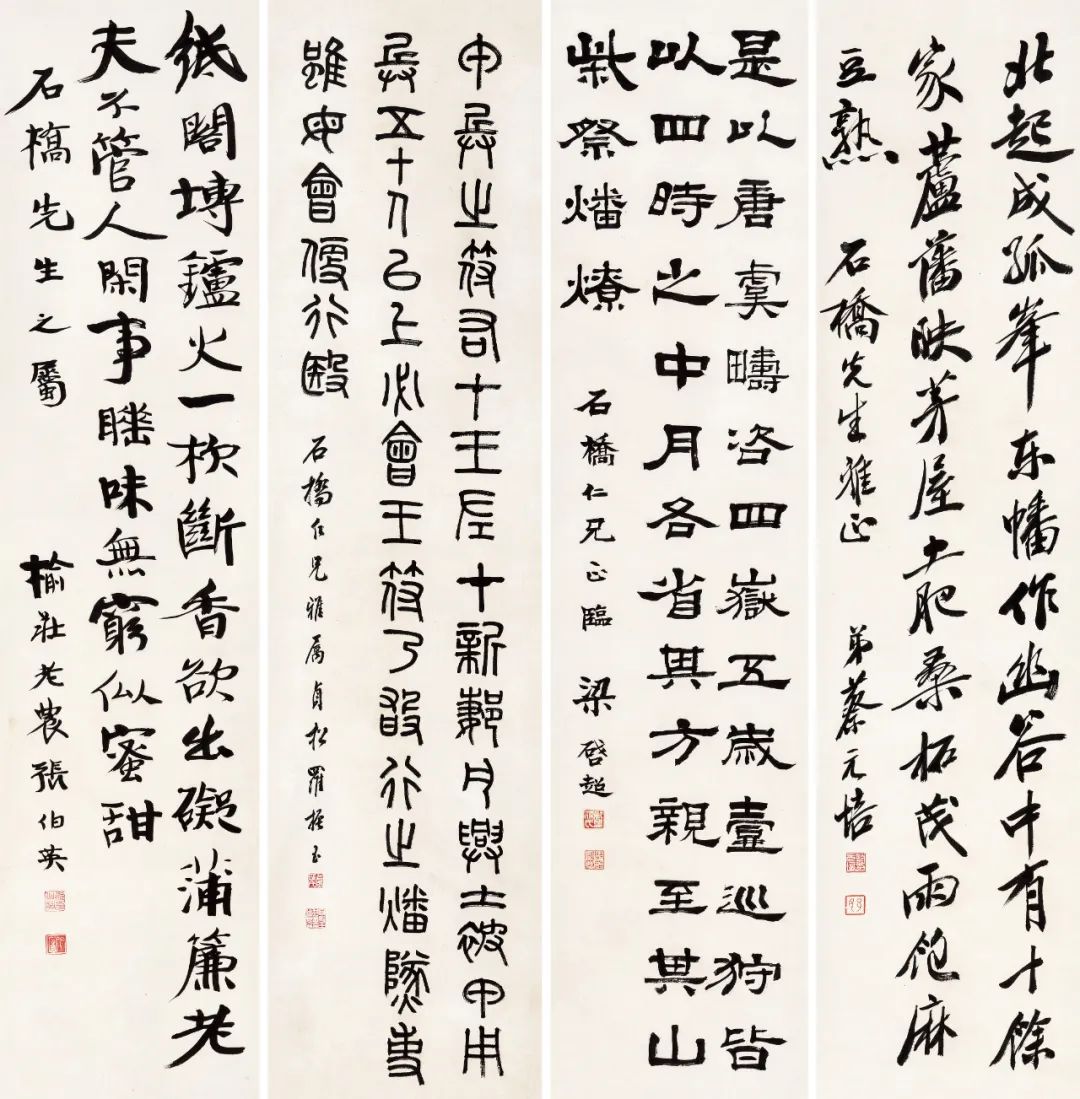 北起成孤峯東幡作幽谷中有十餘
家蘆藩映茅屋土肥桑柘茂雨飽麻
豆熟
石橋先生雅正 弟蔡元培
是以唐虞疇咨四嶽五歲壹巡狩皆
以四時之中月各省其方親至其山
柴祭燔燎
石橋仁兄正臨 梁啓超
甲兵之符右在王左在新郪凡興士被甲用
兵五十人以上必會王符乃敢行之燔隊事
雖毋會行殹
石橋仁兄雅屬 貞松羅振玉
紙閣塼鑪火一杴斷香欲出礙蒲簾老
夫不管人閑事睡味無窮似蜜甜
石橋先生之屬 榆莊老農張伯英